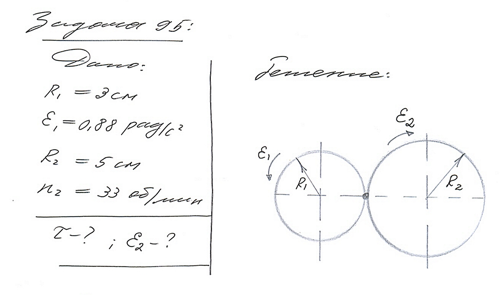 Задача 95:
Дано:
R₁ = 3 см
ε₁ = 0,88 рад/с²
R₂ = 5 см
n₂ = 33 об/мин
τ - ? ; ε₂ - ?
Решение:
ε₁
R₁
ε₂
R₂